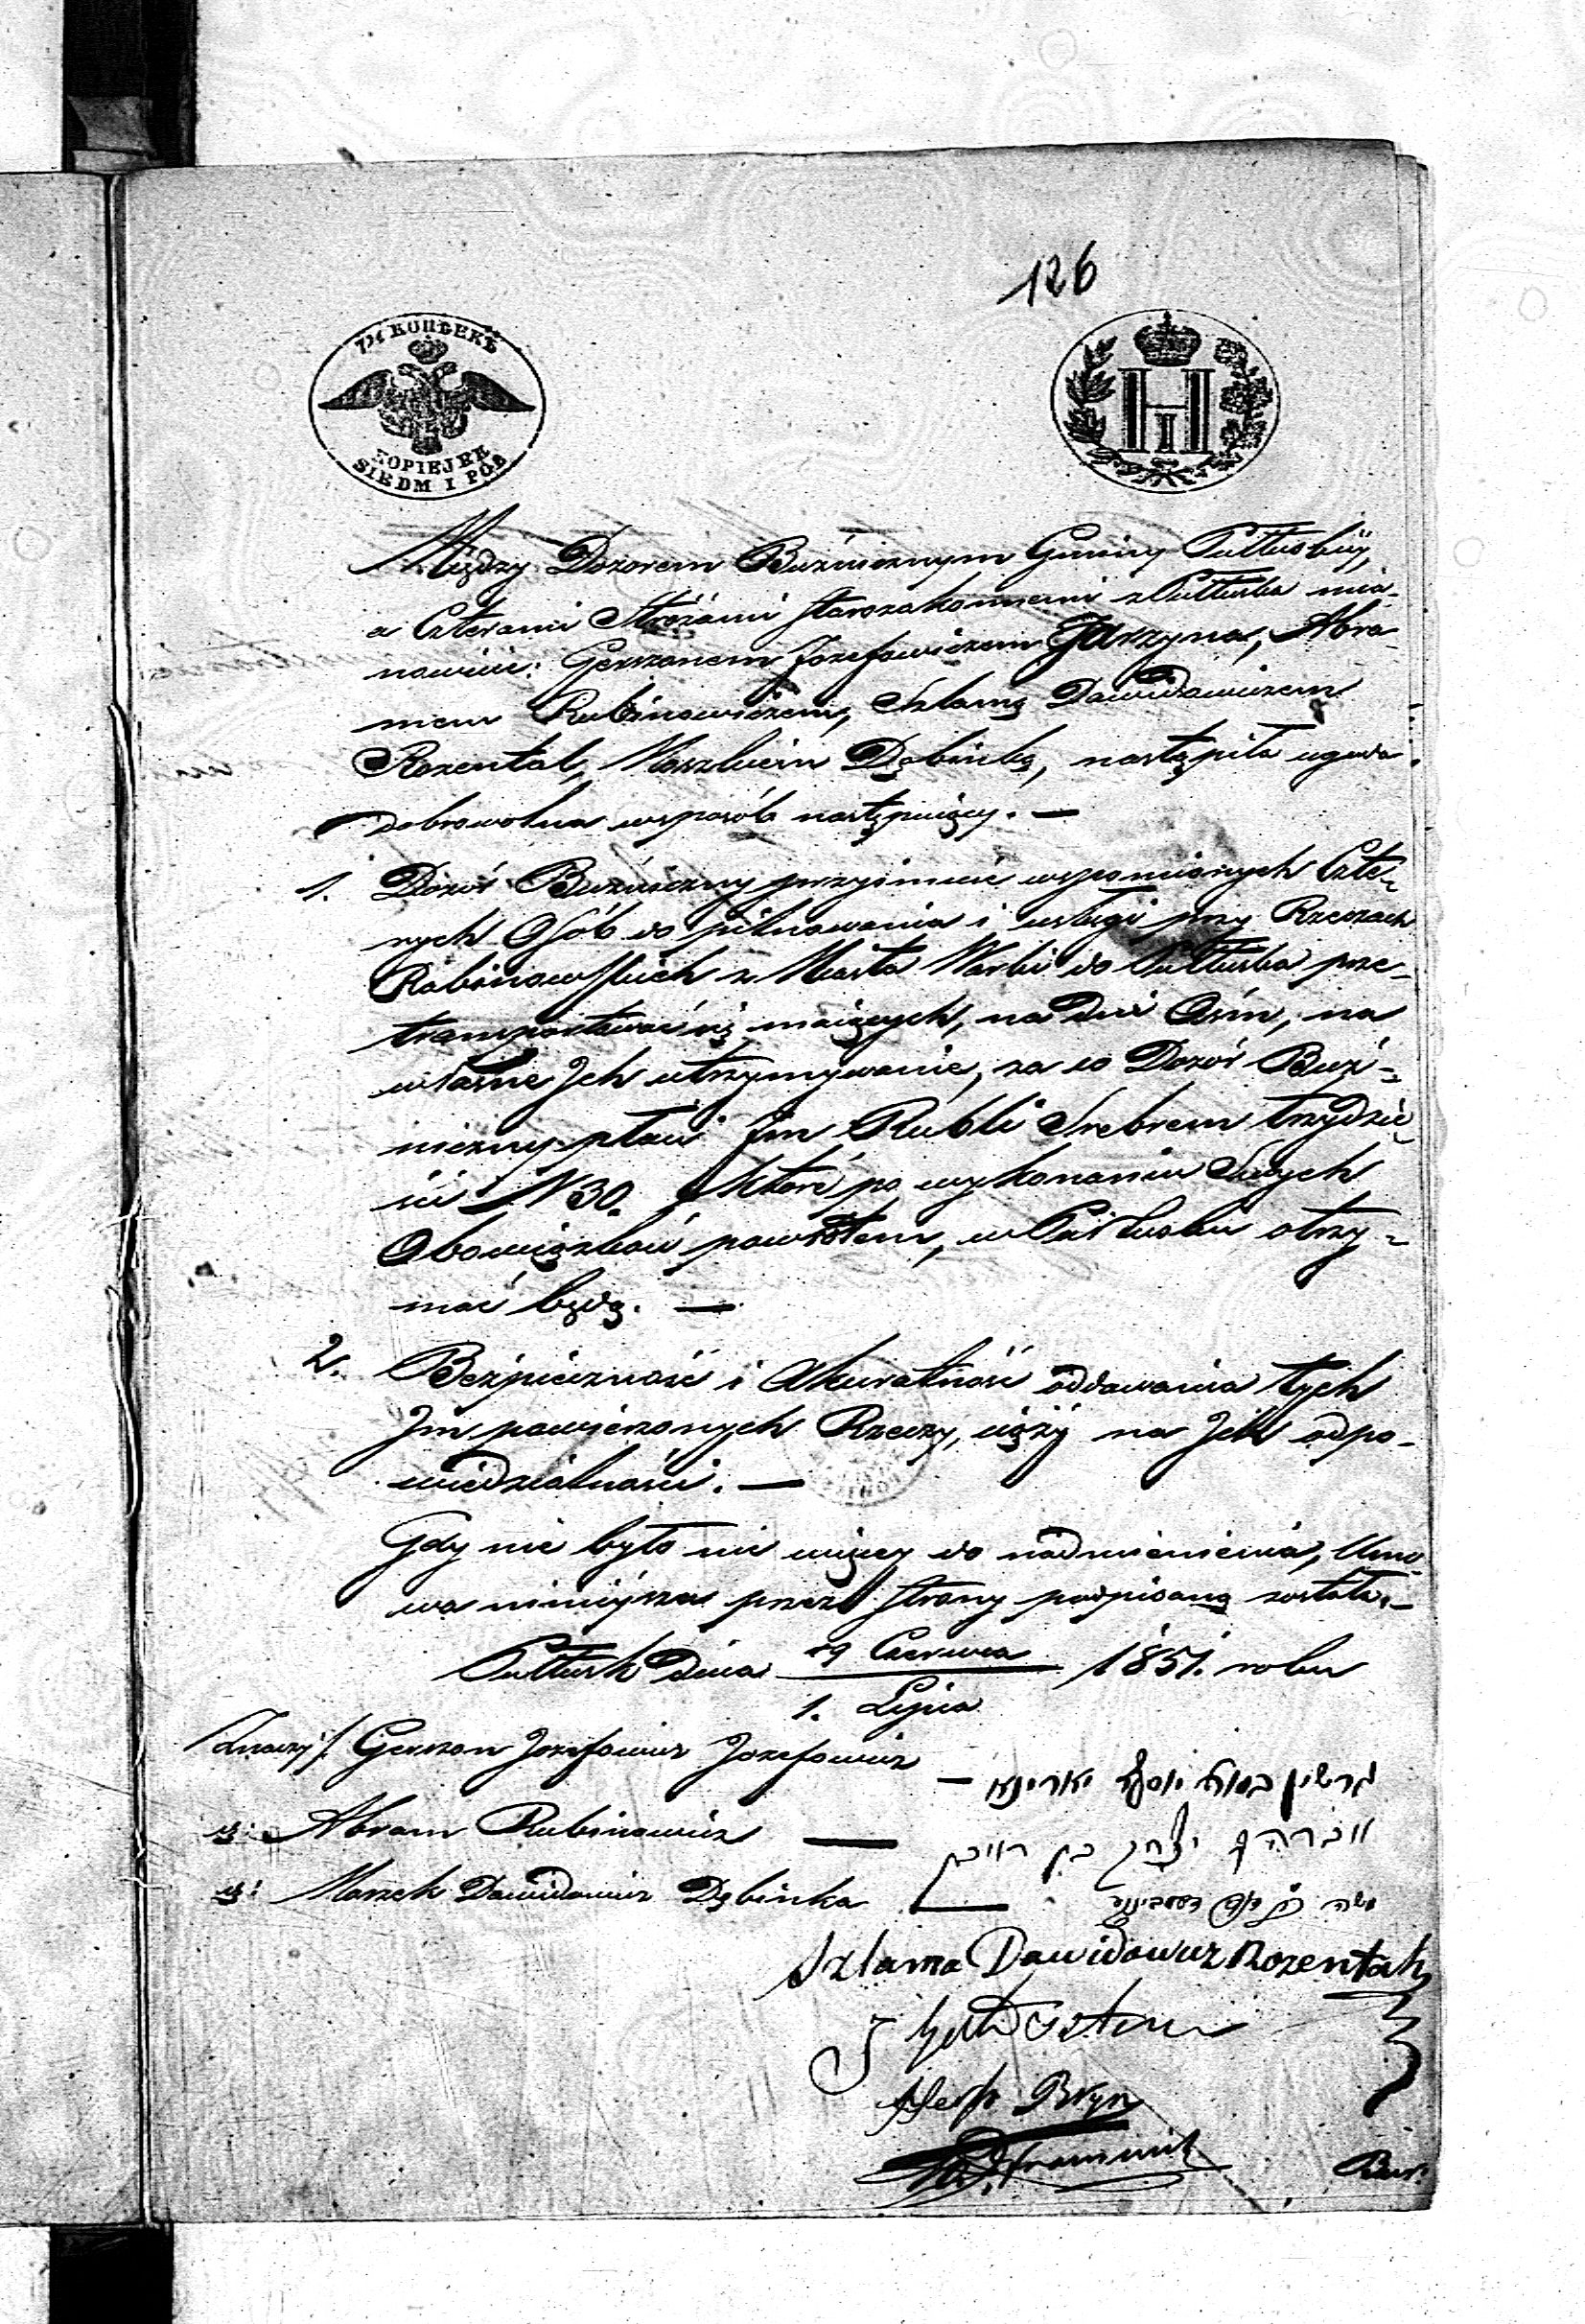 126
7½ КОПѢЕКЪ
KOPIEJEK
SIEDM I PÓŁ
Między Dozorem Bużnicznym Gminy Pułtuskiy,
a Czterami Stróżami starozakonnemi z Pułtuska mia-
nowicie: Gerszonem Jozefowiczem Jarzyna, Abra-
mem Rubinowiczem, Szlamą Dawidowiczem
Rozental, Moszkiem Dębinką, nastąpiła ugoda
dobrowolna w sposób następuiący. —
1. Dozór Bużniczny przyimuie wspomnionych Czte-
rych Osób do pilnowania i usługi przy Rzeczach
Rabinowskich z Miasta Warki do Pułtuska prze-
transportować się maiących, na Dni Ośm, na
własne Jch utrzymywanie, za co Dozór Buż-
niczny płaci Jm Rubli Srebrem trzydzie
ści N 30. które po wykonaniu Swych
Obowiązków powrotem, w Pułtusku otrzy-
mać będą. —
2. Bezpieczność i Akuratność oddawania tych
Jm powierzonych Rzeczy, ciąży na Jch odpo-
wiedzialności. —
Gdy nie było nic więcey do nadmienienia, Umo
wa ninieysza przez strony podpisaną została. —
Pułtusk Dnia 19 Czerwca 1851. roku
1. Lipca
Znaczy/ Gerszon Jozefowicz Jozefowicz — גרשון יוסף
cz: Abram Rubinowicz — אברהם יצחק בן ראובן
cz: Moszek Dawidowicz Dębinka — משה בן דוד
Szlama Dawidowicz Rozental
Hersz Bryn